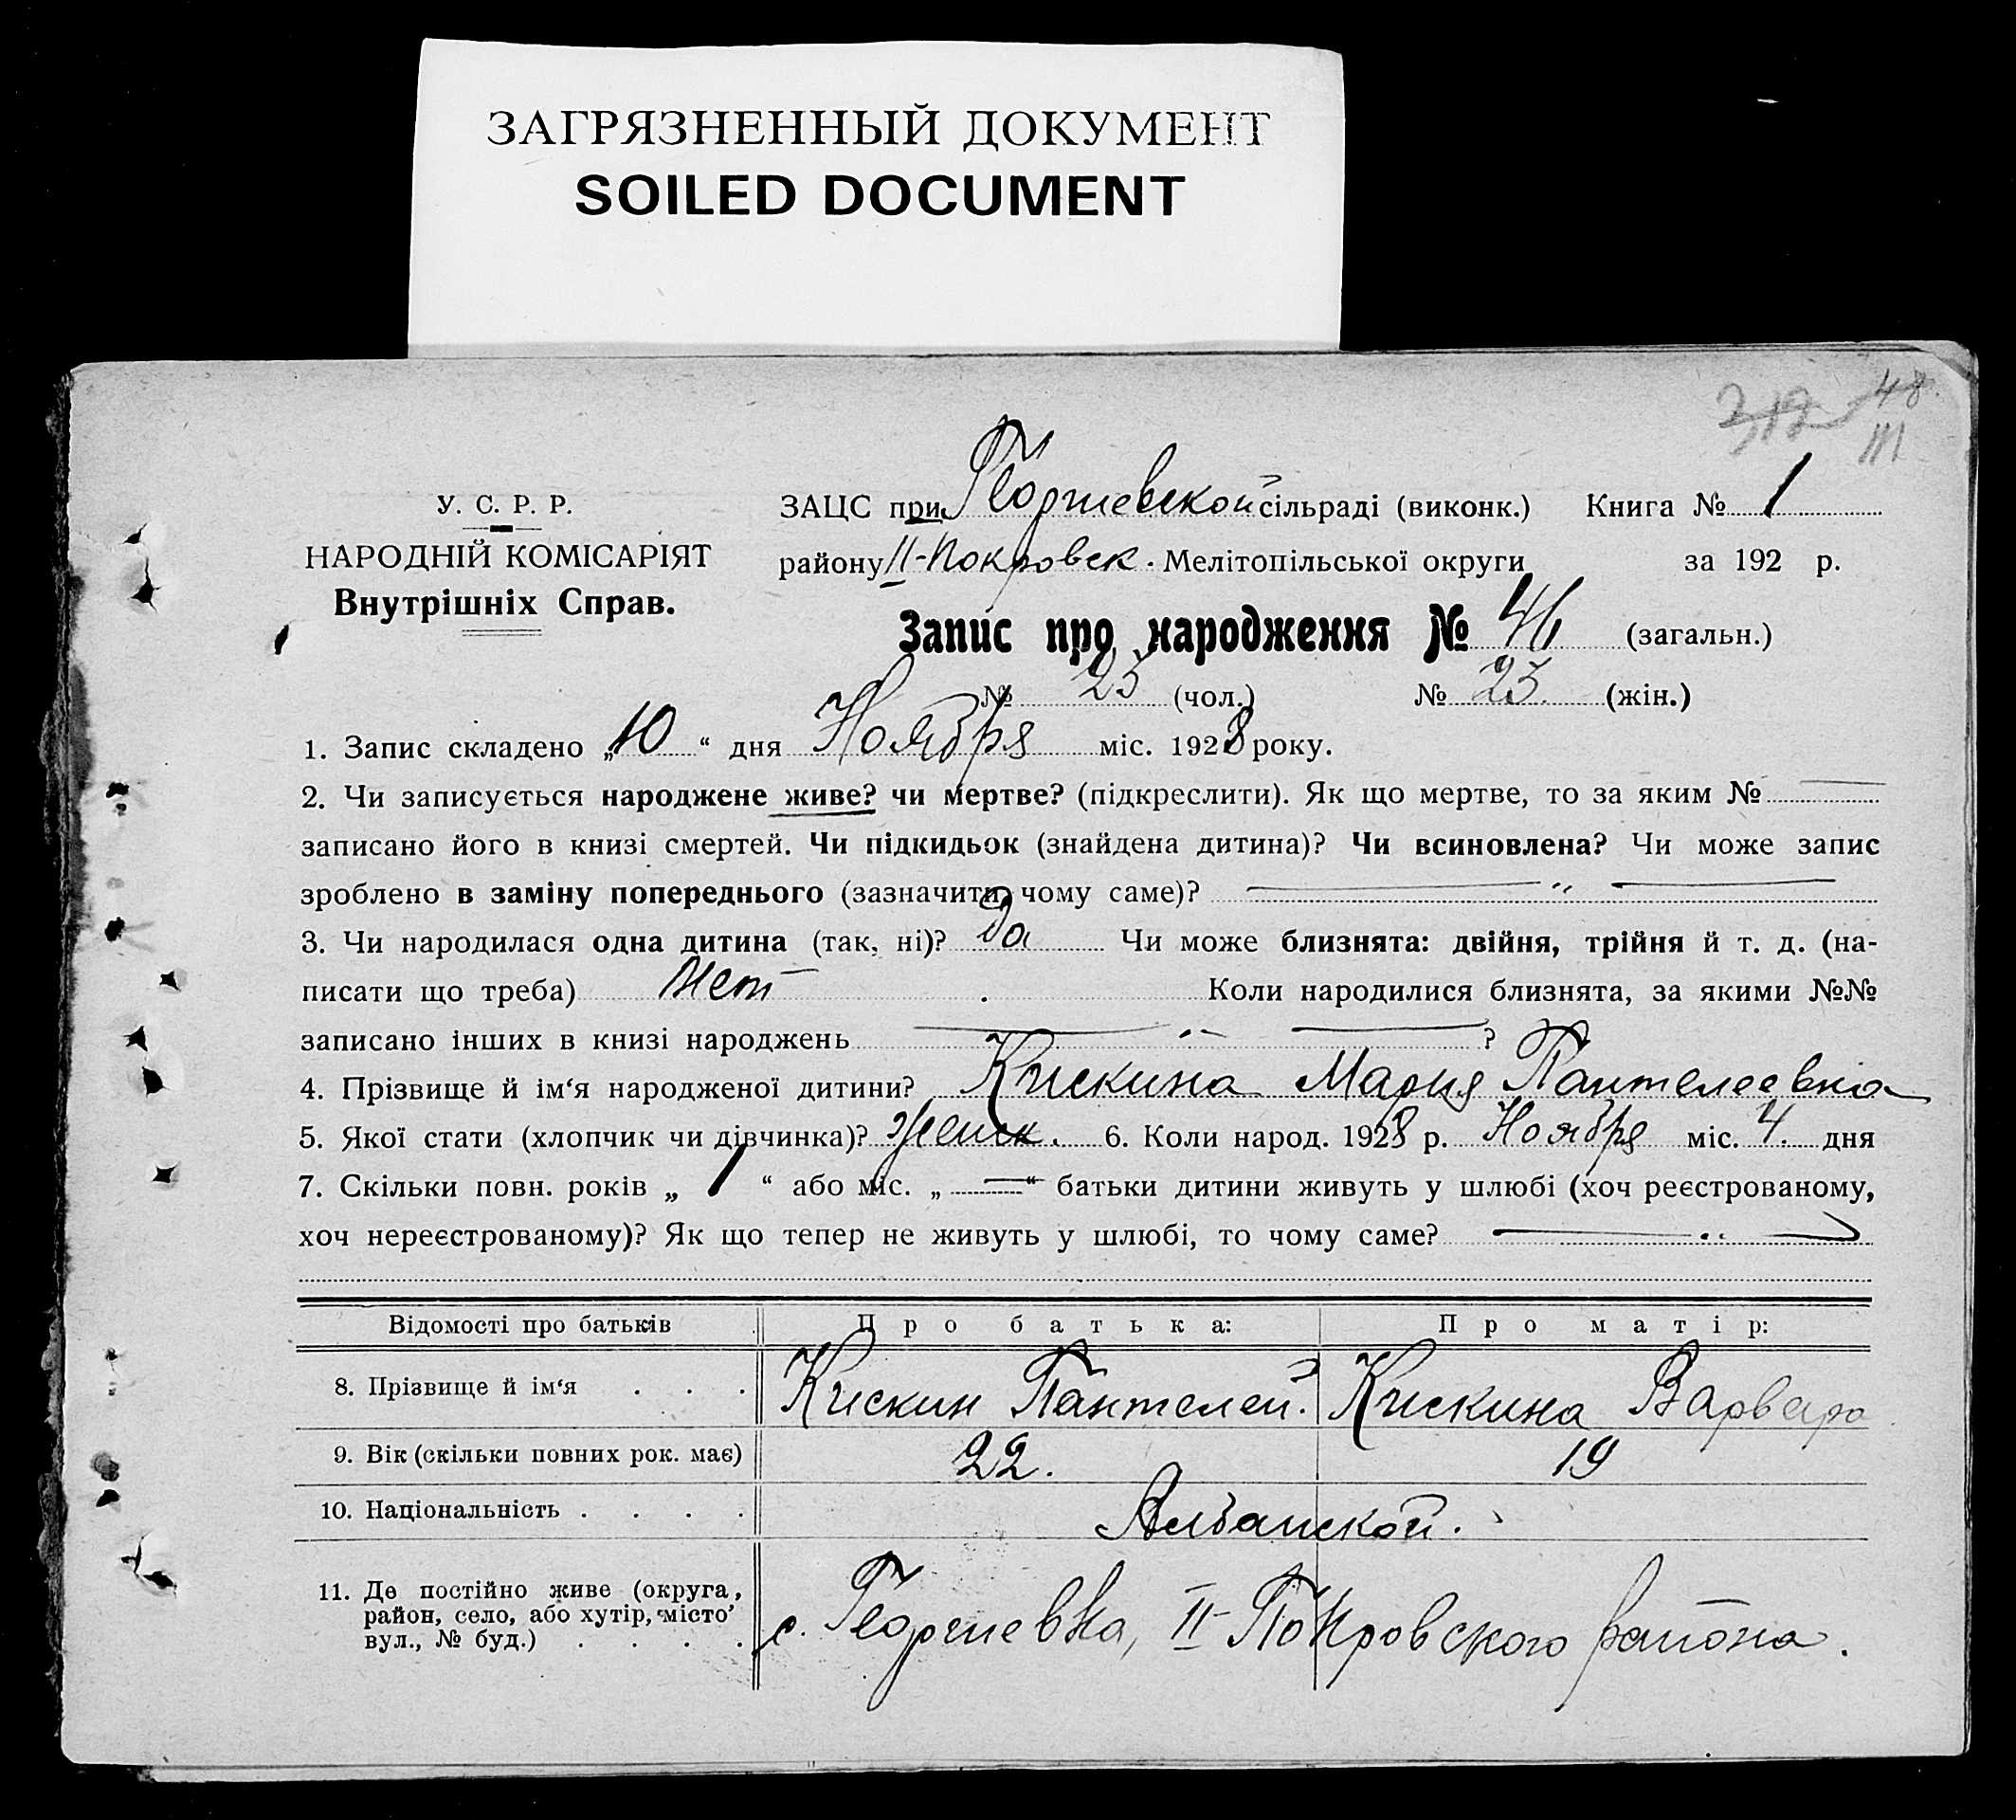 ЗАГРЯЗНЕННЫЙ ДОКУМЕНТ
SOILED DOCUMENT
48.
У. С. Р. Р.
НАРОДНІЙ КОМІСАРІЯТ
Внутрішніх Справ.
ЗАЦС при Георгиевской сільраді (виконк.) Книга № 1
району II-Покровск. Мелітопільської округи за 192 р.
Запис про народження № 46 (загальн.)
№ 23 (чол.) № 23. (жін.)
1. Запис складено „10“ дня Ноября міс. 1928 року.
2. Чи записується народжене живе? чи мертве? (підкреслити). Як що мертве, то за яким № —
записано його в книзі смертей. Чи підкидьок (знайдена дитина)? Чи всиновлена? Чи може запис
зроблено в заміну попереднього (зазначити, чому саме)? — „ —
3. Чи народилася одна дитина (так, ні)? Да Чи може близнята: двійня, трійня й т. д. (на-
писати що треба) Нет. Коли народилися близнята, за якими №№
записано інших в книзі народжень — „ — ?
4. Прізвище й ім‘я народженої дитини? Кискина Мария Пантелеевна
5. Якої стати (хлопчик чи дівчинка)? Женск. 6. Коли народ. 1928 р. Ноября міс. 4. дня
7. Скільки повн. років „ 1 “ або міс. „ — “ батьки дитини живуть у шлюбі (хоч реєстрованому,
хоч нереєстрованому)? Як що тепер не живуть у шлюбі, то чому саме? — „ —
Відомості про батьків Про батька: Про матір:
8. Прізвище й ім‘я . . . Кискин Пантелей. Кискина Варвара
9. Вік (скільки повних рок. має) 22. 19
10. Національність . . . . Албанской.
11. Де постійно живе (округа,
район, село, або хутір, місто
вул., № буд.) . . . . с. Георгиевка, II-Покровского района.